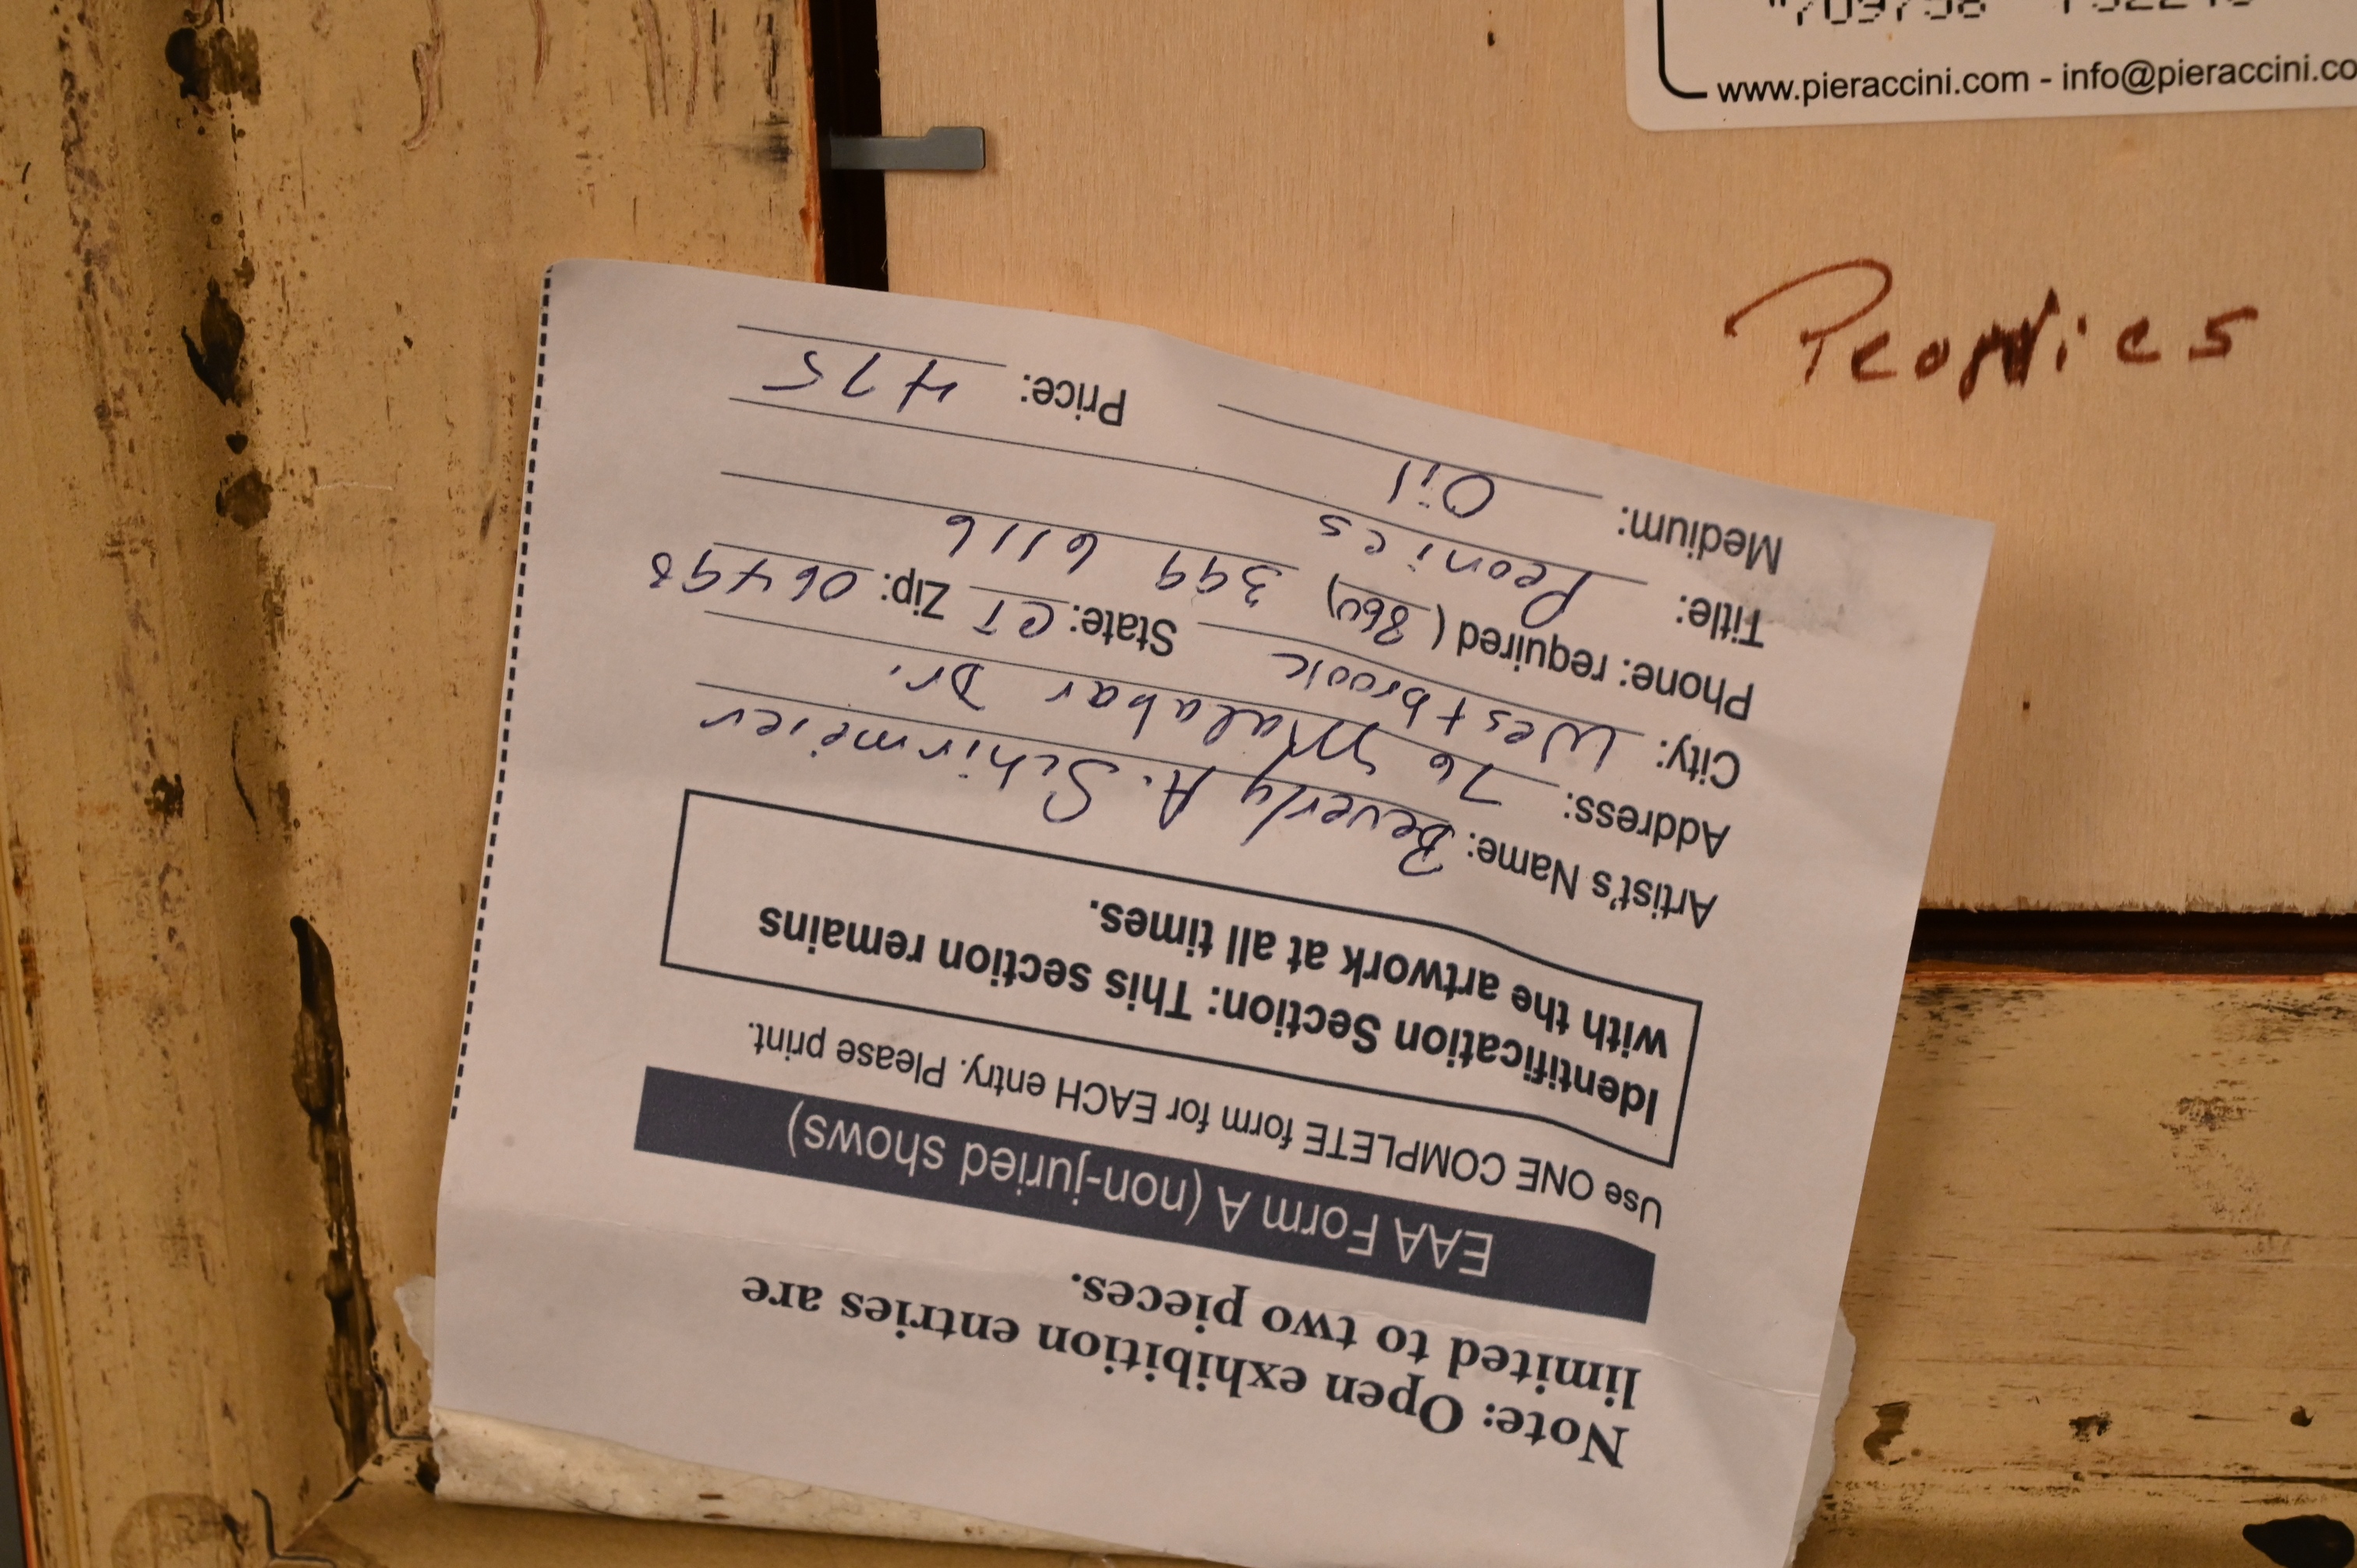 www.pieraccini.com - info@pieraccini.co
Peonies
Note: Open exhibition entries are
limited to two pieces.
EAA Form A (non-juried shows)
Use ONE COMPLETE form for EACH entry. Please print.
Identification Section: This section remains
with the artwork at all times.
Artist's Name: Beverly A. Schirmeier
Address: 76 Malabar Dr.
City: Westbrook State: CT Zip: 06498
Phone: required (860) 399 6116
Title: Peonies
Medium: Oil Price: 475